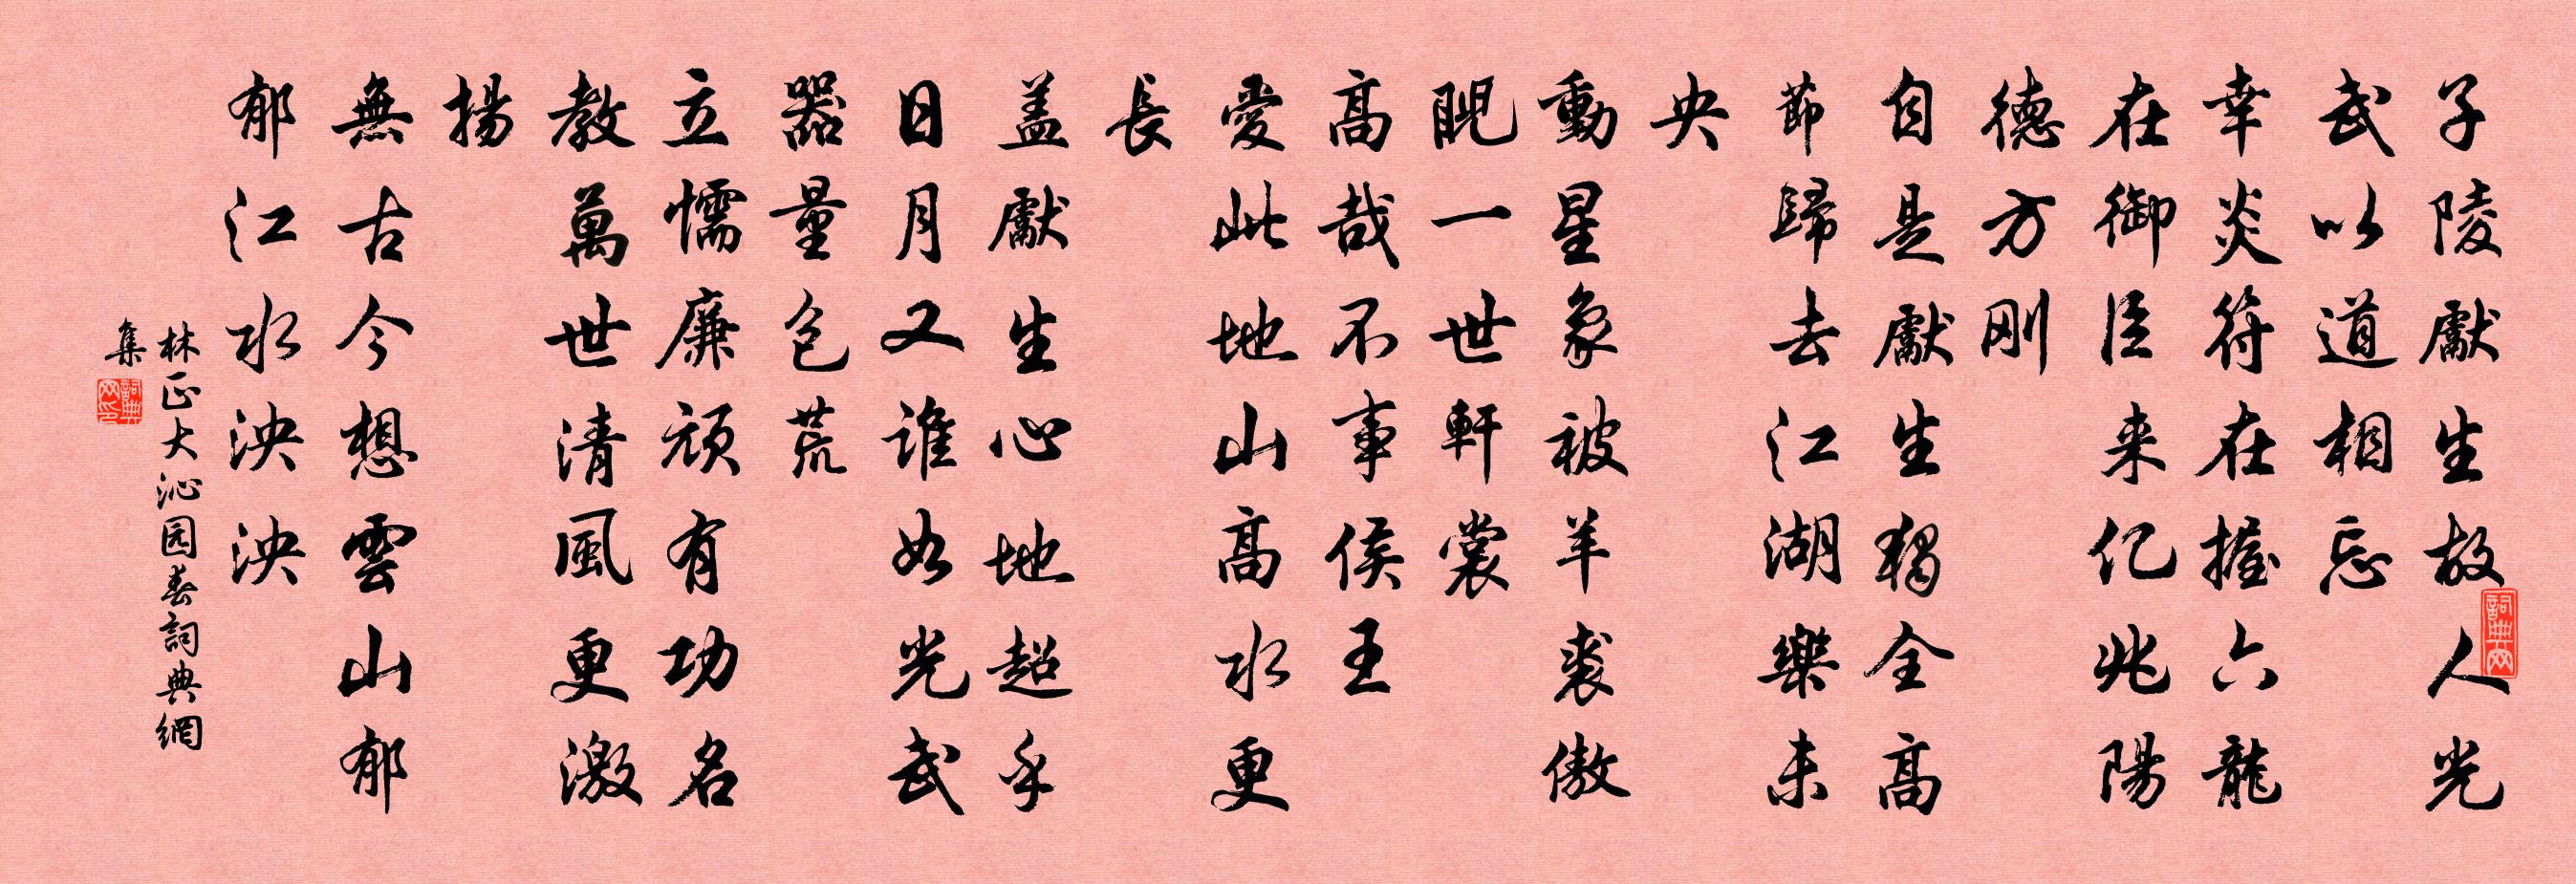 子陵獻生故人光
武以道相忘
幸炎符在握六龍
在御臣来亿兆陽
德方刚
自是獻生獨全高
節歸去江湖樂未
央
動星象被羊裘傲
睨一世軒裳
高哉不事侯王
愛此地山高水更
長
盖獻生心地超乎
日月又谁如光武
器量包荒
立懦廉顽有功名
教萬世清風更激
揚
無古今想雲山郁
郁江水泱泱
林正大沁园春詞典網
集
詞典网
詞典网印